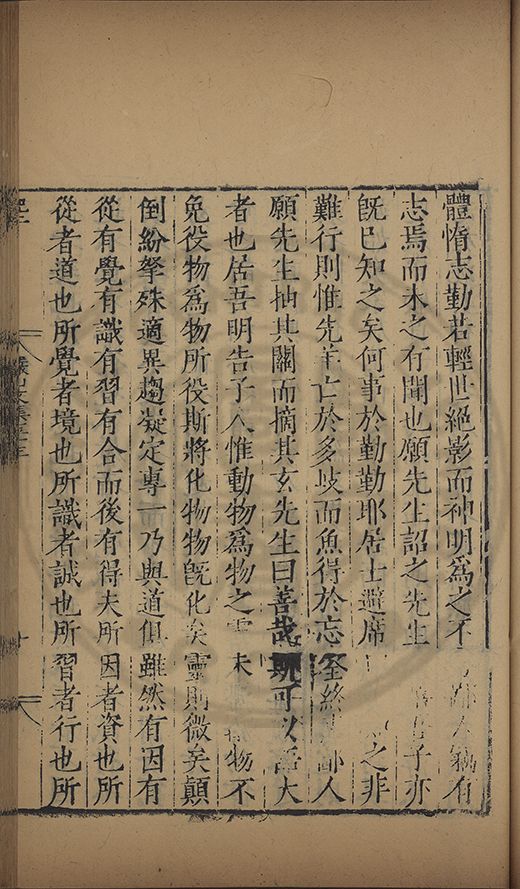 體惰志勤若輕世絕影而神明爲之不人竊有
志焉而未之有聞也願先生詔之先生子亦
旣已知之矣何事於勤勤耶居士避席之非
難行則惟先羊亡於多歧而魚得於忘筌終鄙人
願先生抽其關而摘其玄先生曰善哉斯可以語大
者也居吾明告子人惟動物爲物之未物不
免役物爲物所役斯將化物物旣化矣靈則微矣顛
倒紛拏殊適異趨凝定專一乃與道俱雖然有因有
從有覺有識有習有合而後有得夫所因者資也所
從者道也所覺者境也所識者誠也所習者行也所